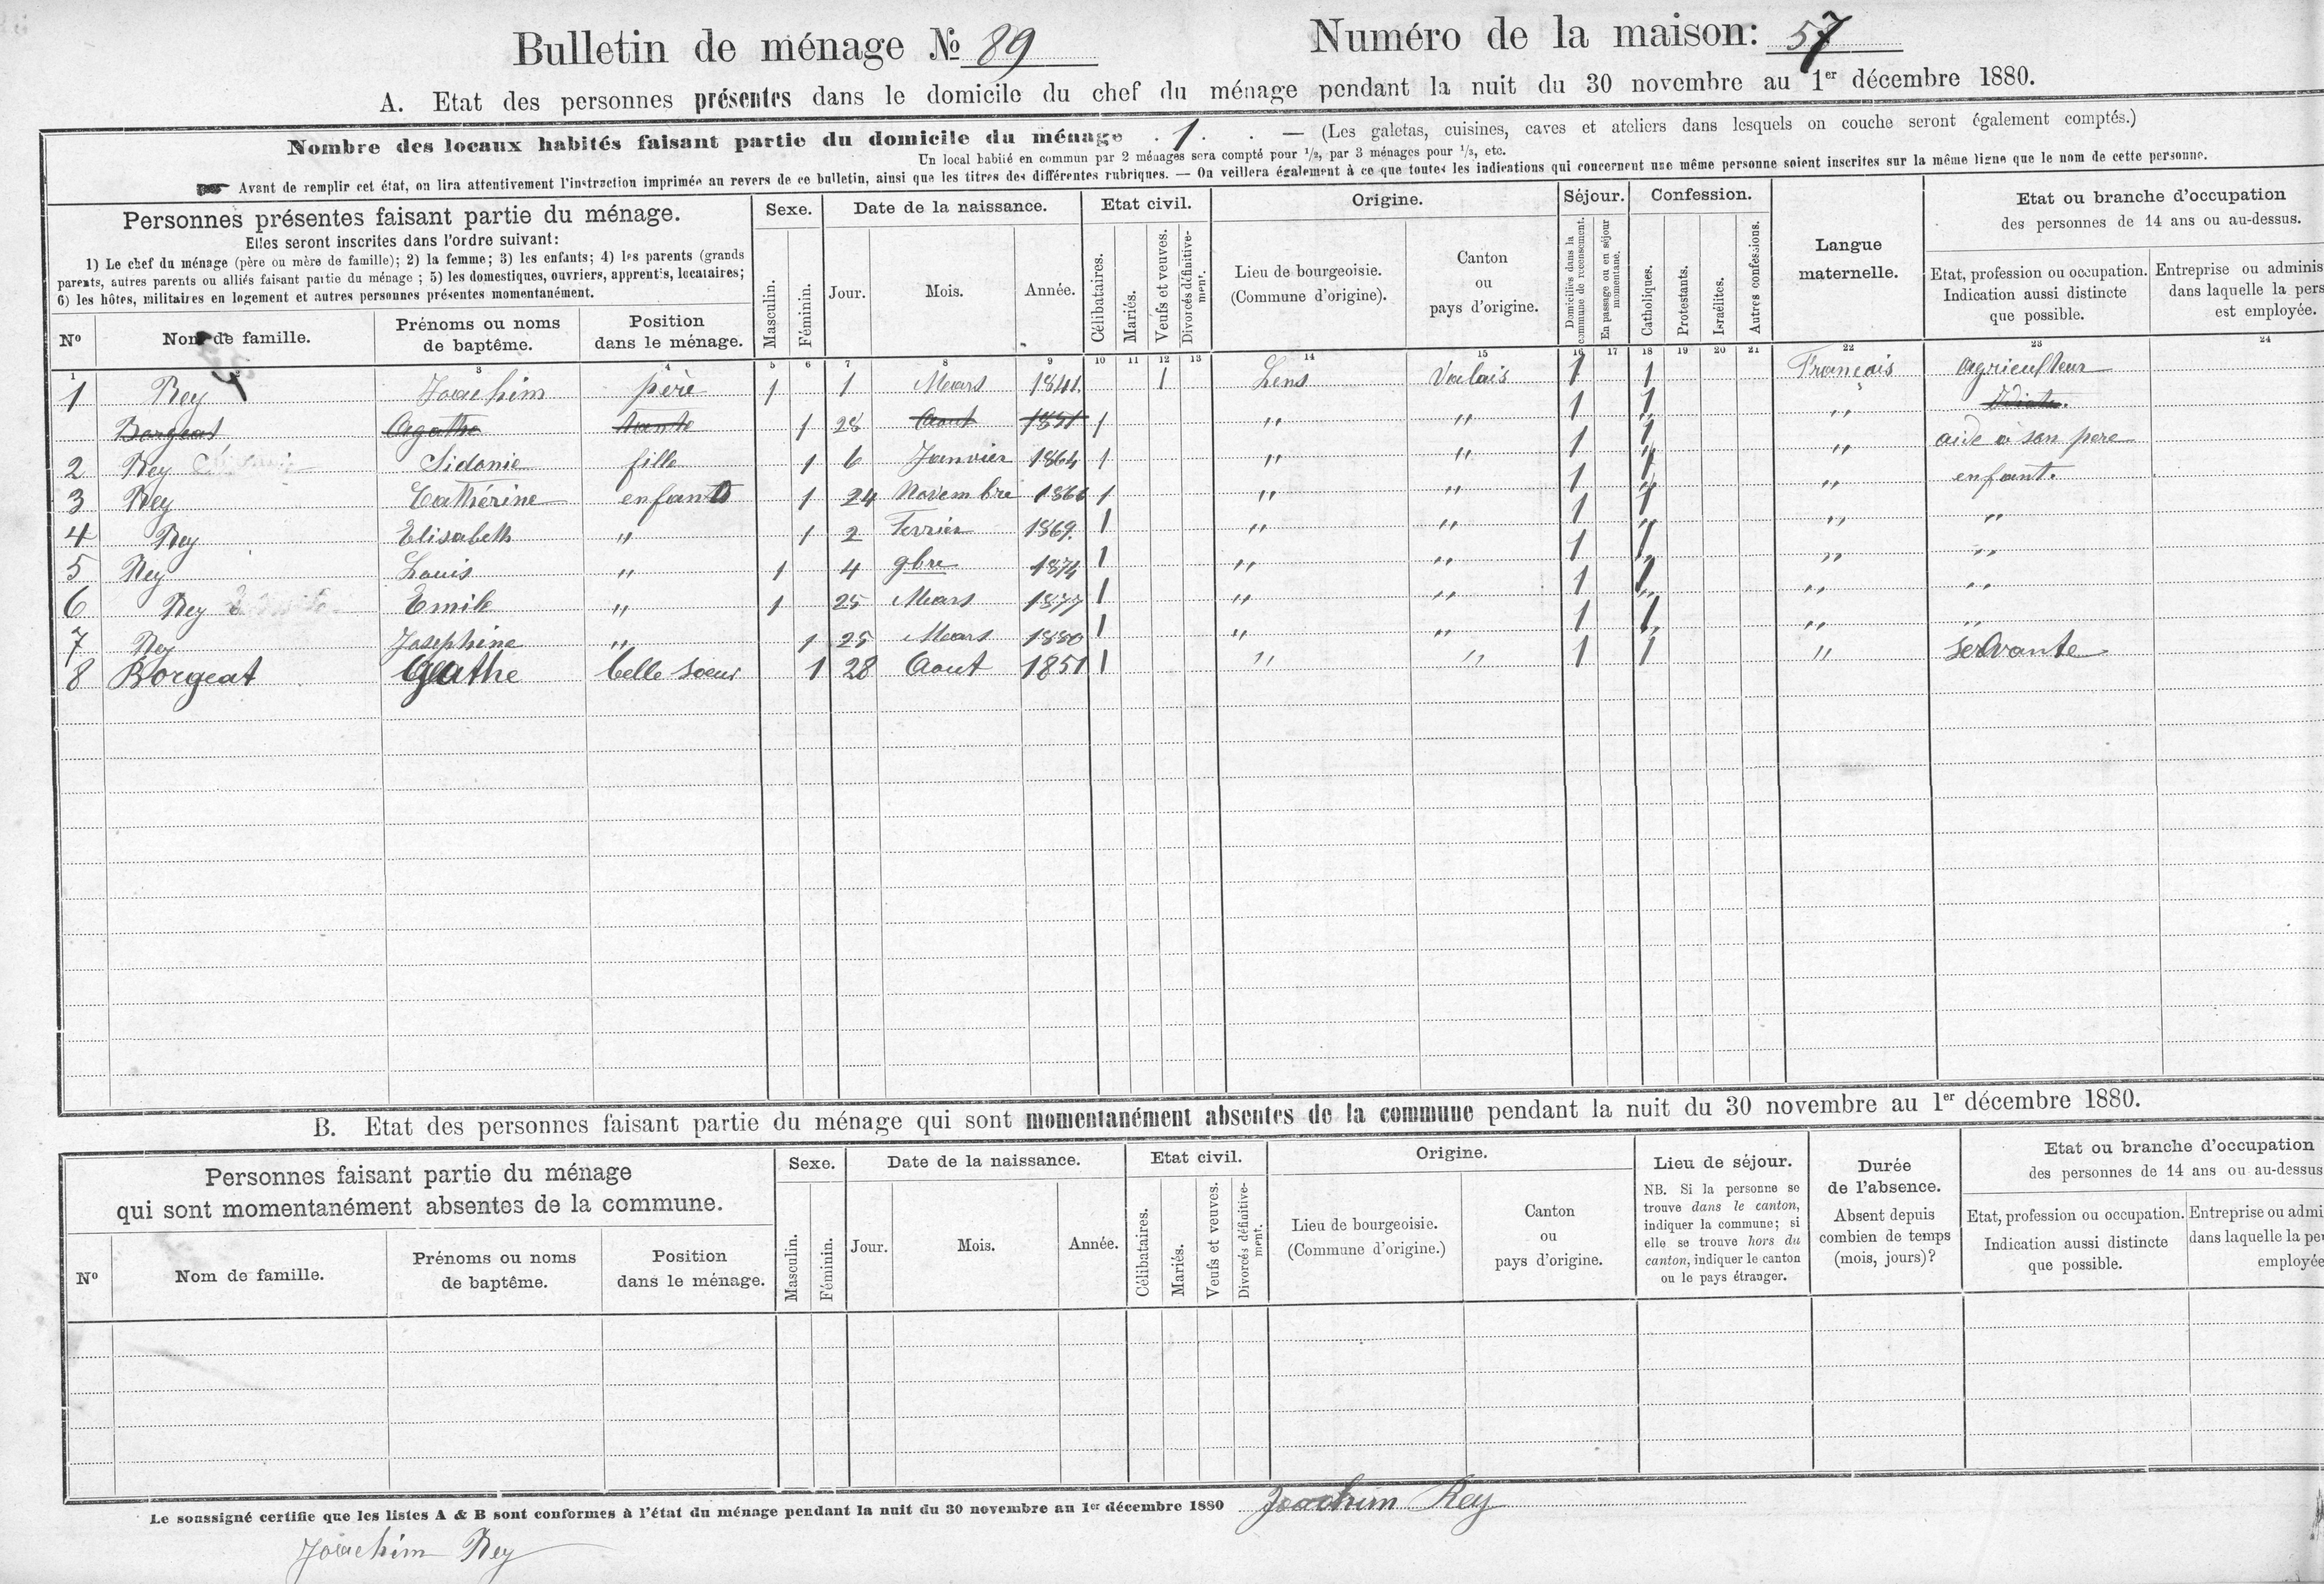 Bulletin de ménage № 89 Numéro de la maison: 57
A. Etat des personnes présentes dans le domicile du chef du ménage pendant la nuit du 30 novembre au 1er décembre 1880.
Nombre des locaux habités faisant partie du domicile du ménage . 1 . . — (Les galetas, cuisines, caves et ateliers dans lesquels on couche seront également comptés.)
Un local habité en commun par 2 ménages sera compté pour 1/2, par 3 ménages pour 1/3, etc.
Avant de remplir cet état, on lira attentivement l'instruction imprimée au revers de ce bulletin, ainsi que les titres des différentes rubriques. — On veillera également à ce que toutes les indications qui concernent une même personne soient inscrites sur la même ligne que le nom de cette personne.
Personnes présentes faisant partie du ménage.
Elles seront inscrites dans l'ordre suivant:
1) Le chef du ménage (père ou mère de famille); 2) la femme; 3) les enfants; 4) les parents (grands
parents, autres parents ou alliés faisant partie du ménage ; 5) les domestiques, ouvriers, apprentis, locataires;
6) les hôtes, militaires en logement et autres personnes présentes momentanément.
Nº
Nom de famille.
Prénoms ou noms
de baptême.
Position
dans le ménage.
Sexe.
Masculin.
Féminin.
Date de la naissance.
Jour.
Mois.
Année.
Etat civil.
Célibataires.
Mariés.
Veufs et veuves.
Divorcés définitive-
ment.
Origine.
Lieu de bourgeoisie.
(Commune d'origine).
Canton
ou
pays d'origine.
Séjour.
Domiciliés dans la
commune de recensement.
En passage ou en séjour
momentané.
Confession.
Catholiques.
Protestants.
Israélites.
Autres confessions.
Langue
maternelle.
Etat ou branche d'occupation
des personnes de 14 ans ou au-dessus.
Etat, profession ou occupation.
Indication aussi distincte
que possible.
Entreprise ou adminis
dans laquelle la pers
est employée.
1 3 4 5 6 7 8 9 10 11 12 13 14 15 16 17 18 19 20 21 22 23 24
1 Rey Joachim père 1 1 Mars 1841 1 Lens Valais 1 1 Français agriculteur
Borgeat Agathe tante 1 28 Aout 1851 1 " " 1 1 "
2 Rey Sidonie fille 1 6 Janvier 1864 1 " " 1 1 " aide a son pere
3 Rey Cathérine enfant 1 24 Novembre 1866 1 " " 1 1 " enfant.
4 Rey Elisabeth " 1 2 Ferrier 1869. 1 " " 1 1 " "
5 Rey Louis " 1 4 9bre 1874 1 " " 1 1 " "
6 Rey Emile " 1 25 Mars 1877 1 " " 1 1 " "
7 Rey Josephine " 1 25 Mars 1880 1 " " 1 1 " "
8 Borgeat Agathe belle soeur 1 28 Aout 1851 1 " " 1 1 " servante
B. Etat des personnes faisant partie du ménage qui sont momentanément absentes de la commune pendant la nuit du 30 novembre au 1er décembre 1880.
Personnes faisant partie du ménage
qui sont momentanément absentes de la commune.
Nº
Nom de famille.
Prénoms ou noms
de baptême.
Position
dans le ménage.
Sexe.
Masculin.
Féminin.
Date de la naissance.
Jour.
Mois.
Année.
Etat civil.
Célibataires.
Mariés.
Veufs et veuves.
Divorcés définitive-
ment.
Origine.
Lieu de bourgeoisie.
(Commune d'origine.)
Canton
ou
pays d'origine.
Lieu de séjour.
NB. Si la personne se
trouve dans le canton,
indiquer la commune; si
elle se trouve hors du
canton, indiquer le canton
ou le pays étranger.
Durée
de l'absence.
Absent depuis
combien de temps
(mois, jours)?
Etat ou branche d'occupation
des personnes de 14 ans ou au-dessus
Etat, profession ou occupation.
Indication aussi distincte
que possible.
Entreprise ou admi
dans laquelle la pe
employée
Le soussigné certifie que les listes A & B sont conformes à l'état du ménage pendant la nuit du 30 novembre au 1er décembre 1880 Joachim Rey
Joachim Rey